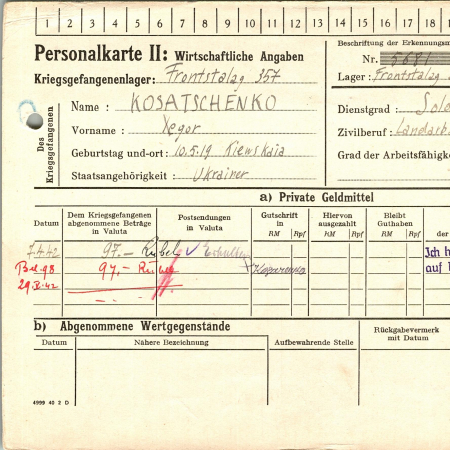 1 2 3 4 5 6 7 8 9 10 11 12 13 14 15 16 17 18
Personalkarte II: Wirtschaftliche Angaben
Kriegsgefangenenlager: Frontstalag 357
Beschriftung der Erkennungsm
Nr. 5681
Lager: Frontstalag
Des Kriegsgefangenen
Name: KOSATSCHENKO
Vorname: Yegor
Geburtstag und -ort: 10.5.19 Kiewskaia
Staatsangehörigkeit: Ukrainer
Dienstgrad: Sol
Zivilberuf: Landarb
Grad der Arbeitsfähigke
a) Private Geldmittel
Datum
Dem Kriegsgefangenen abgenommene Beträge in Valuta
Postsendungen in Valuta
Gutschrift in
RM Rpf
Hiervon ausgezahlt
RM Rpf
Bleibt Guthaben
RM Rpf
der
7.4.42 97.– Rubel
Ich h
Bel. 98 97,– Rubel
auf
29.V.42
b) Abgenommene Wertgegenstände
Datum
Nähere Bezeichnung
Aufbewahrende Stelle
Rückgabevermerk mit Datum
4999 40 2 D